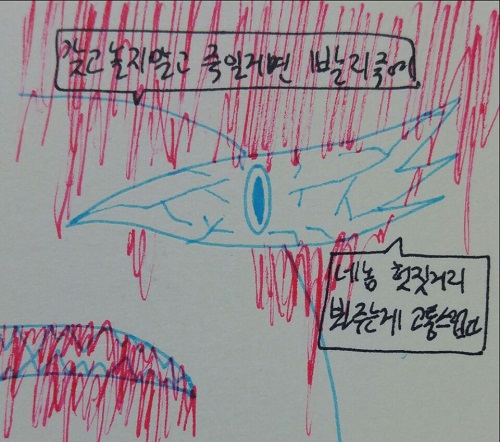 갖고 놀지말고 죽일거면 빨리 죽여
네놈 헛짓거리
봐주는게 고통스럽고